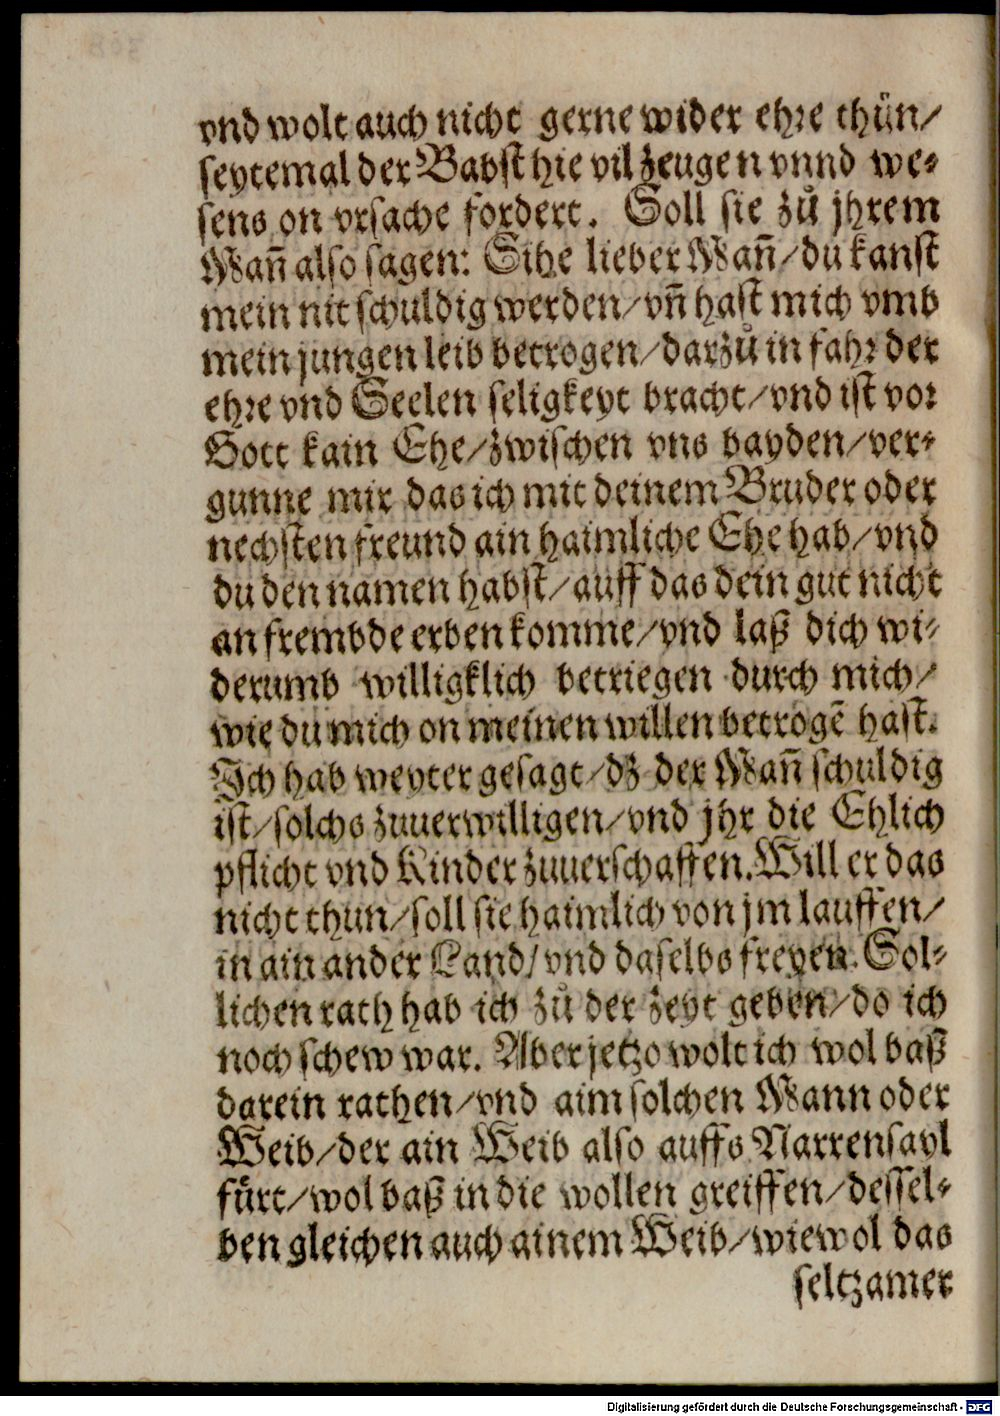 vnd wolt auch nicht gerne wider ehre thůn/
seytemal der Babst hie vil zeugen vnnd we-
sens on vrsache fordert. Soll sie zů jhrem
Mañ also sagen: Sihe lieber Mañ/du kanst
mein nit schuldig werden/vñ hast mich vmb
mein jungen leib betrogen/darzů in fahr der
ehre vnd Seelen seligkeyt bracht/vnd ist vor
Gott kain Ehe/zwischen vns bayden/ver-
gunne mir das ich mit deinem Bruder oder
nechsten freund ain haimliche Ehe hab/vnd
du den namen habst/auff das dein gut nicht
an frembde erben komme/vnd laß dich wi-
derumb willigklich betriegen durch mich/
wie du mich on meinen willen betrogẽ hast.
Ich hab weyter gesagt/dz der Mañ schuldig
ist/solchs zuuerwilligen/vnd jhr die Ehlich
pflicht vnd Kinder zuuerschaffen. Will er das
nicht thun/soll sie haimlich von jm lauffen/
in ain ander Land/vnd daselbs freyen. Sol-
lichen rath hab ich zů der zeyt geben/do ich
noch schew war. Aber jetzo wolt ich wol baß
darein rathen/vnd aim solchen Mann oder
Weib/der ain Weib also auffs Narrensayl
fürt/wol baß in die wollen greiffen/dessel-
ben gleichen auch ainem Weib/wiewol das
seltzamer
Digitalisierung gefördert durch die Deutsche Forschungsgemeinschaft - DFG